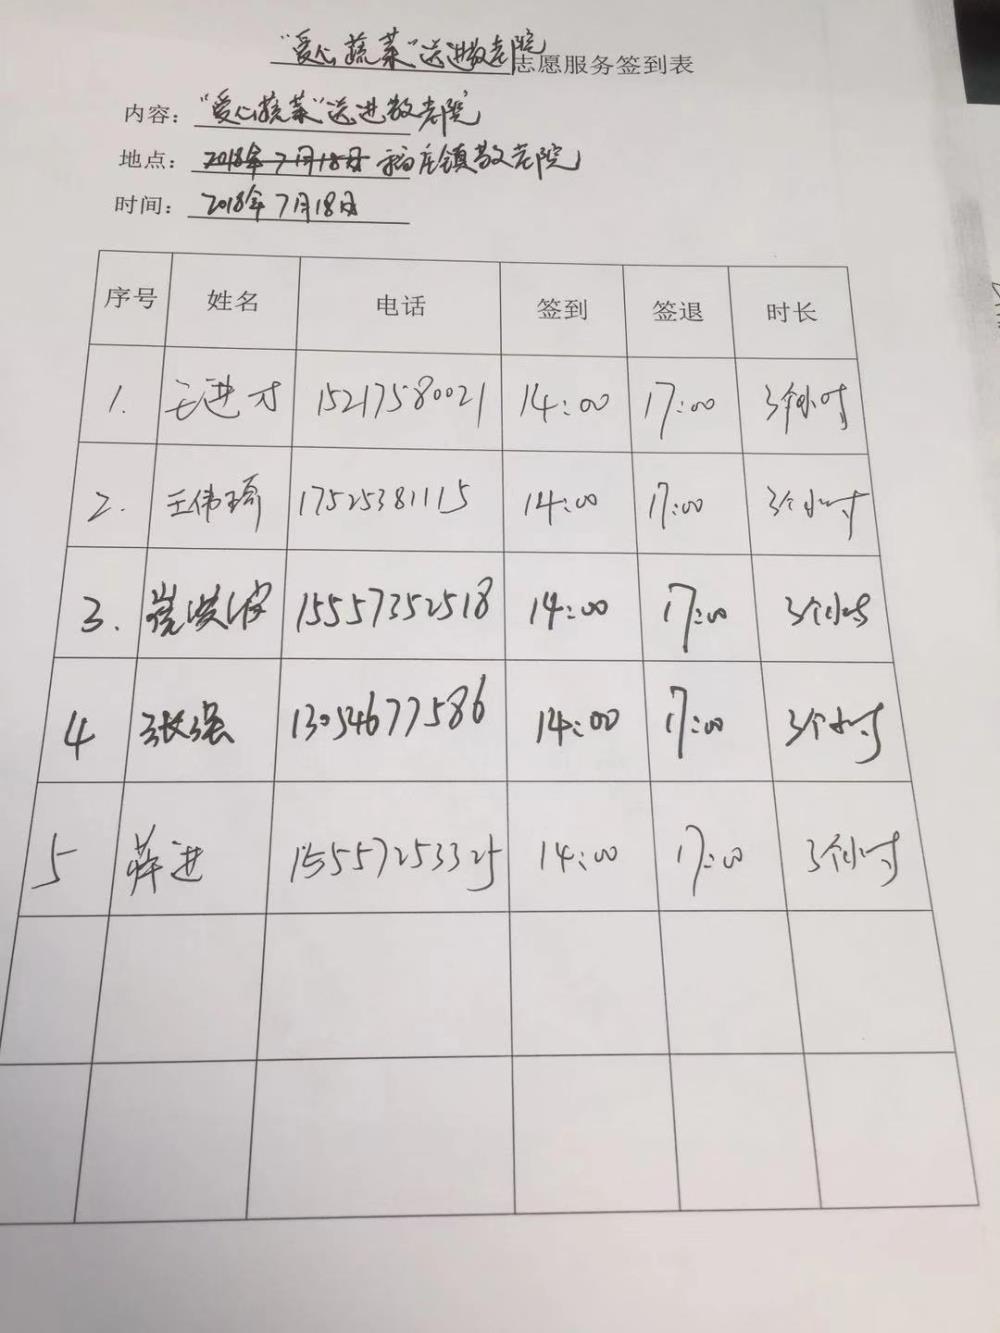 "爱心蔬菜"送进敬老院志愿服务签到表
内容："爱心蔬菜"送进敬老院
地点：2018年7月18日 店镇敬老院
时间：2018年7月18日
序号 姓名 电话 签到 签退 时长
1. 王进才 15217580021 14:00 17:00 3个小时
2. 王伟琦 17525381115 14:00 17:00 3个小时
3. 15557352518 14:00 17:00 3个小时
4 张强 13054677586 14:00 17:00 3个小时
5 薛进 15557253325 14:00 17:00 3个小时